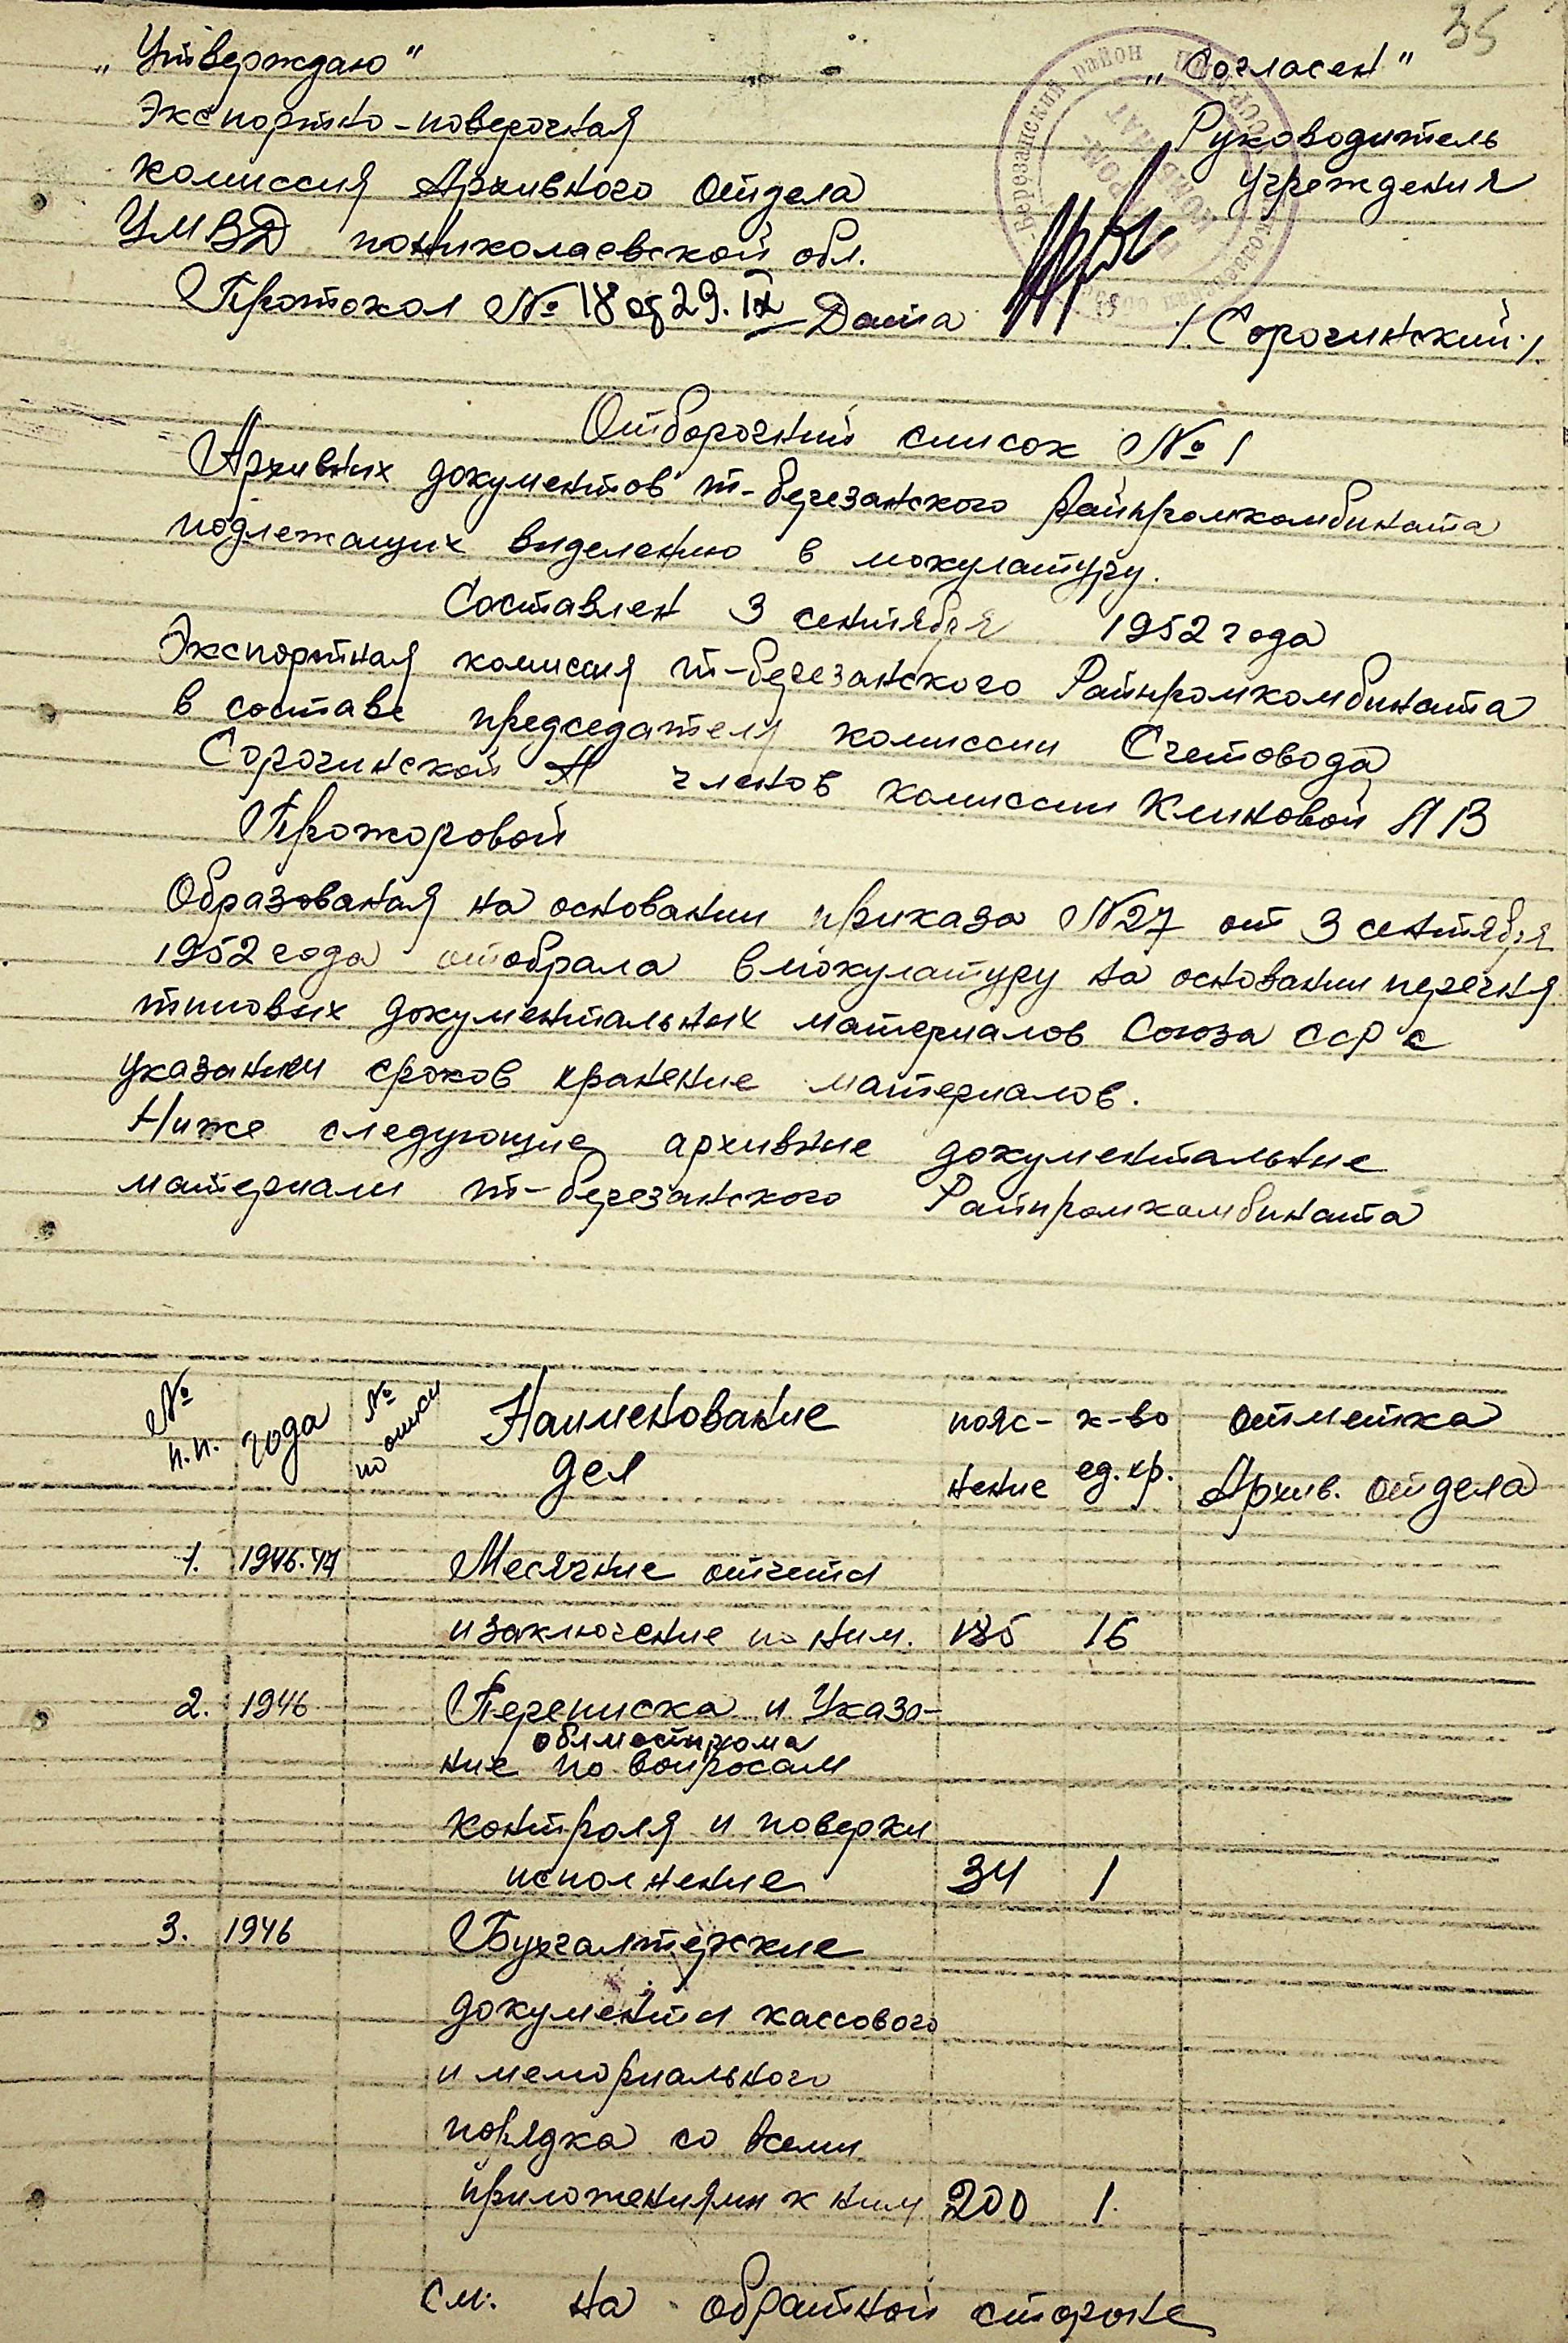 35
„Утверждаю"
Экспортно-поверочная
комиссия Архивного отдела
УМВД пониколаевской обл.
Протокол № 18 от 29.IX Дата
„Согласен"
Руководитель
учреждения
/.Сорочинский./
Отборочний список № 1
Архивних документов т-березанского Райпромкомбината
подлежащих виделению в мокулатуру.
Составлен 3 сентября 1952 года
Экспортная комиссия т-березанского Райпромкомбината
в составе председателя комиссии Счетовода
Сорочинской А членов комиссии Климовой А В
Прожоровой
Образованая на основании приказа №27 от 3 сентября
1952 года отобрала вмокулатуру на основании перечня
типових документальних материалов Союза ССР с
указанием сроков хранение материалов.
Ниже следующие архивние документальние
материали т-березанского Райпромкомбината
№ п.п. года № по описи Наименование пояс- к-во отметка
дел нение ед.хр. Архив. отдела
1. 1946-47 Месячние отчети
и заключение по ним. 185 16
2. 1946 Переписка и Указа-
облместпрома
ние по вопросам
контроля и поверки
исполнение 34 1
3. 1946 Бухгалтерские
документи кассового
и мемориального
порядка со всеми
приложениями к ним 200 1
см. на обратной стороне